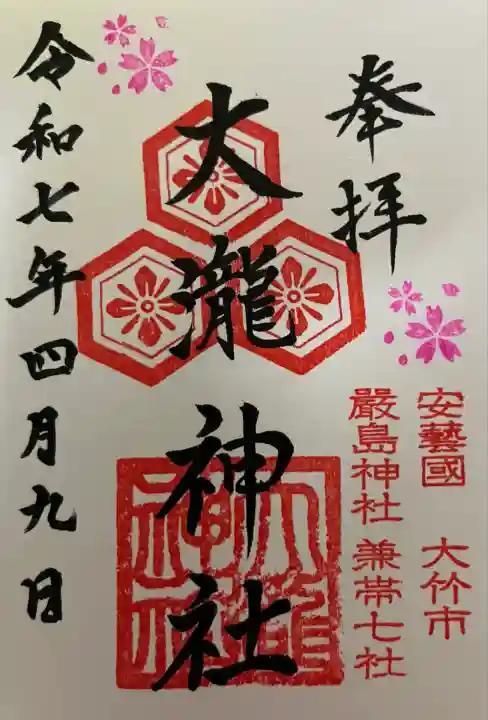 奉拝
安藝國 大竹市
嚴島神社 兼帯七社
大瀧神社
大瀧神社
令和七年四月九日